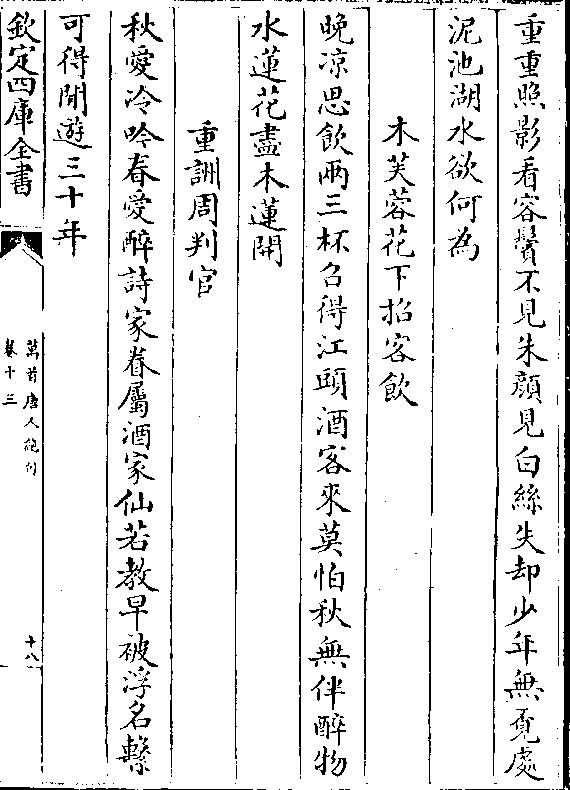 重重照影看容鬢不見朱顔見白絲失却少年無覔處
泥池湖水欲何為
木芙蓉花下招客飲
晚凉思飲兩三杯召得江頭酒客來莫怕秋無伴醉物
水蓮花盡木蓮開
重詶周判官
秋愛冷吟春愛醉詩家眷屬酒家仙若教早被浮名繫
可得閒遊三十年
欽定四庫全書
萬首唐人絶句
卷十三
十八